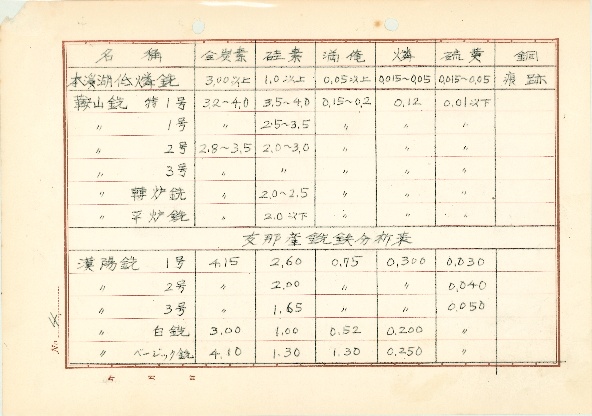 名稱 全炭素 硅素 満俺 燐 硫黄 銅
本溪湖低燐銑 3,00以上 1,0以上 0,05以上 0,015~0,05 0,015~0,05 痕跡
鞍山銑 特1号 3,2~4,0 3,5~4,0 0,15~0,2 0,12 0,01以下
〃 1号 〃 2,5~3,5 〃 〃 〃
〃 2号 2,8~3,5 2,0~3,0 〃 〃 〃
〃 3号 〃 〃 〃 〃 〃
〃 轉炉銑 〃 2,0~2,5 〃 〃 〃
〃 平炉銑 〃 2,0以下 〃 〃 〃
支那產銑鉄分析表
漢陽銑 1号 4,15 2,60 0,75 0,300 0,030
〃 2号 〃 2,00 〃 〃 0,040
〃 3号 〃 1,65 〃 〃 0,050
〃 白銑 3,00 1,00 0,52 0,200 〃
〃 ベージック銑 4,10 1,30 1,30 0,250 〃
No.